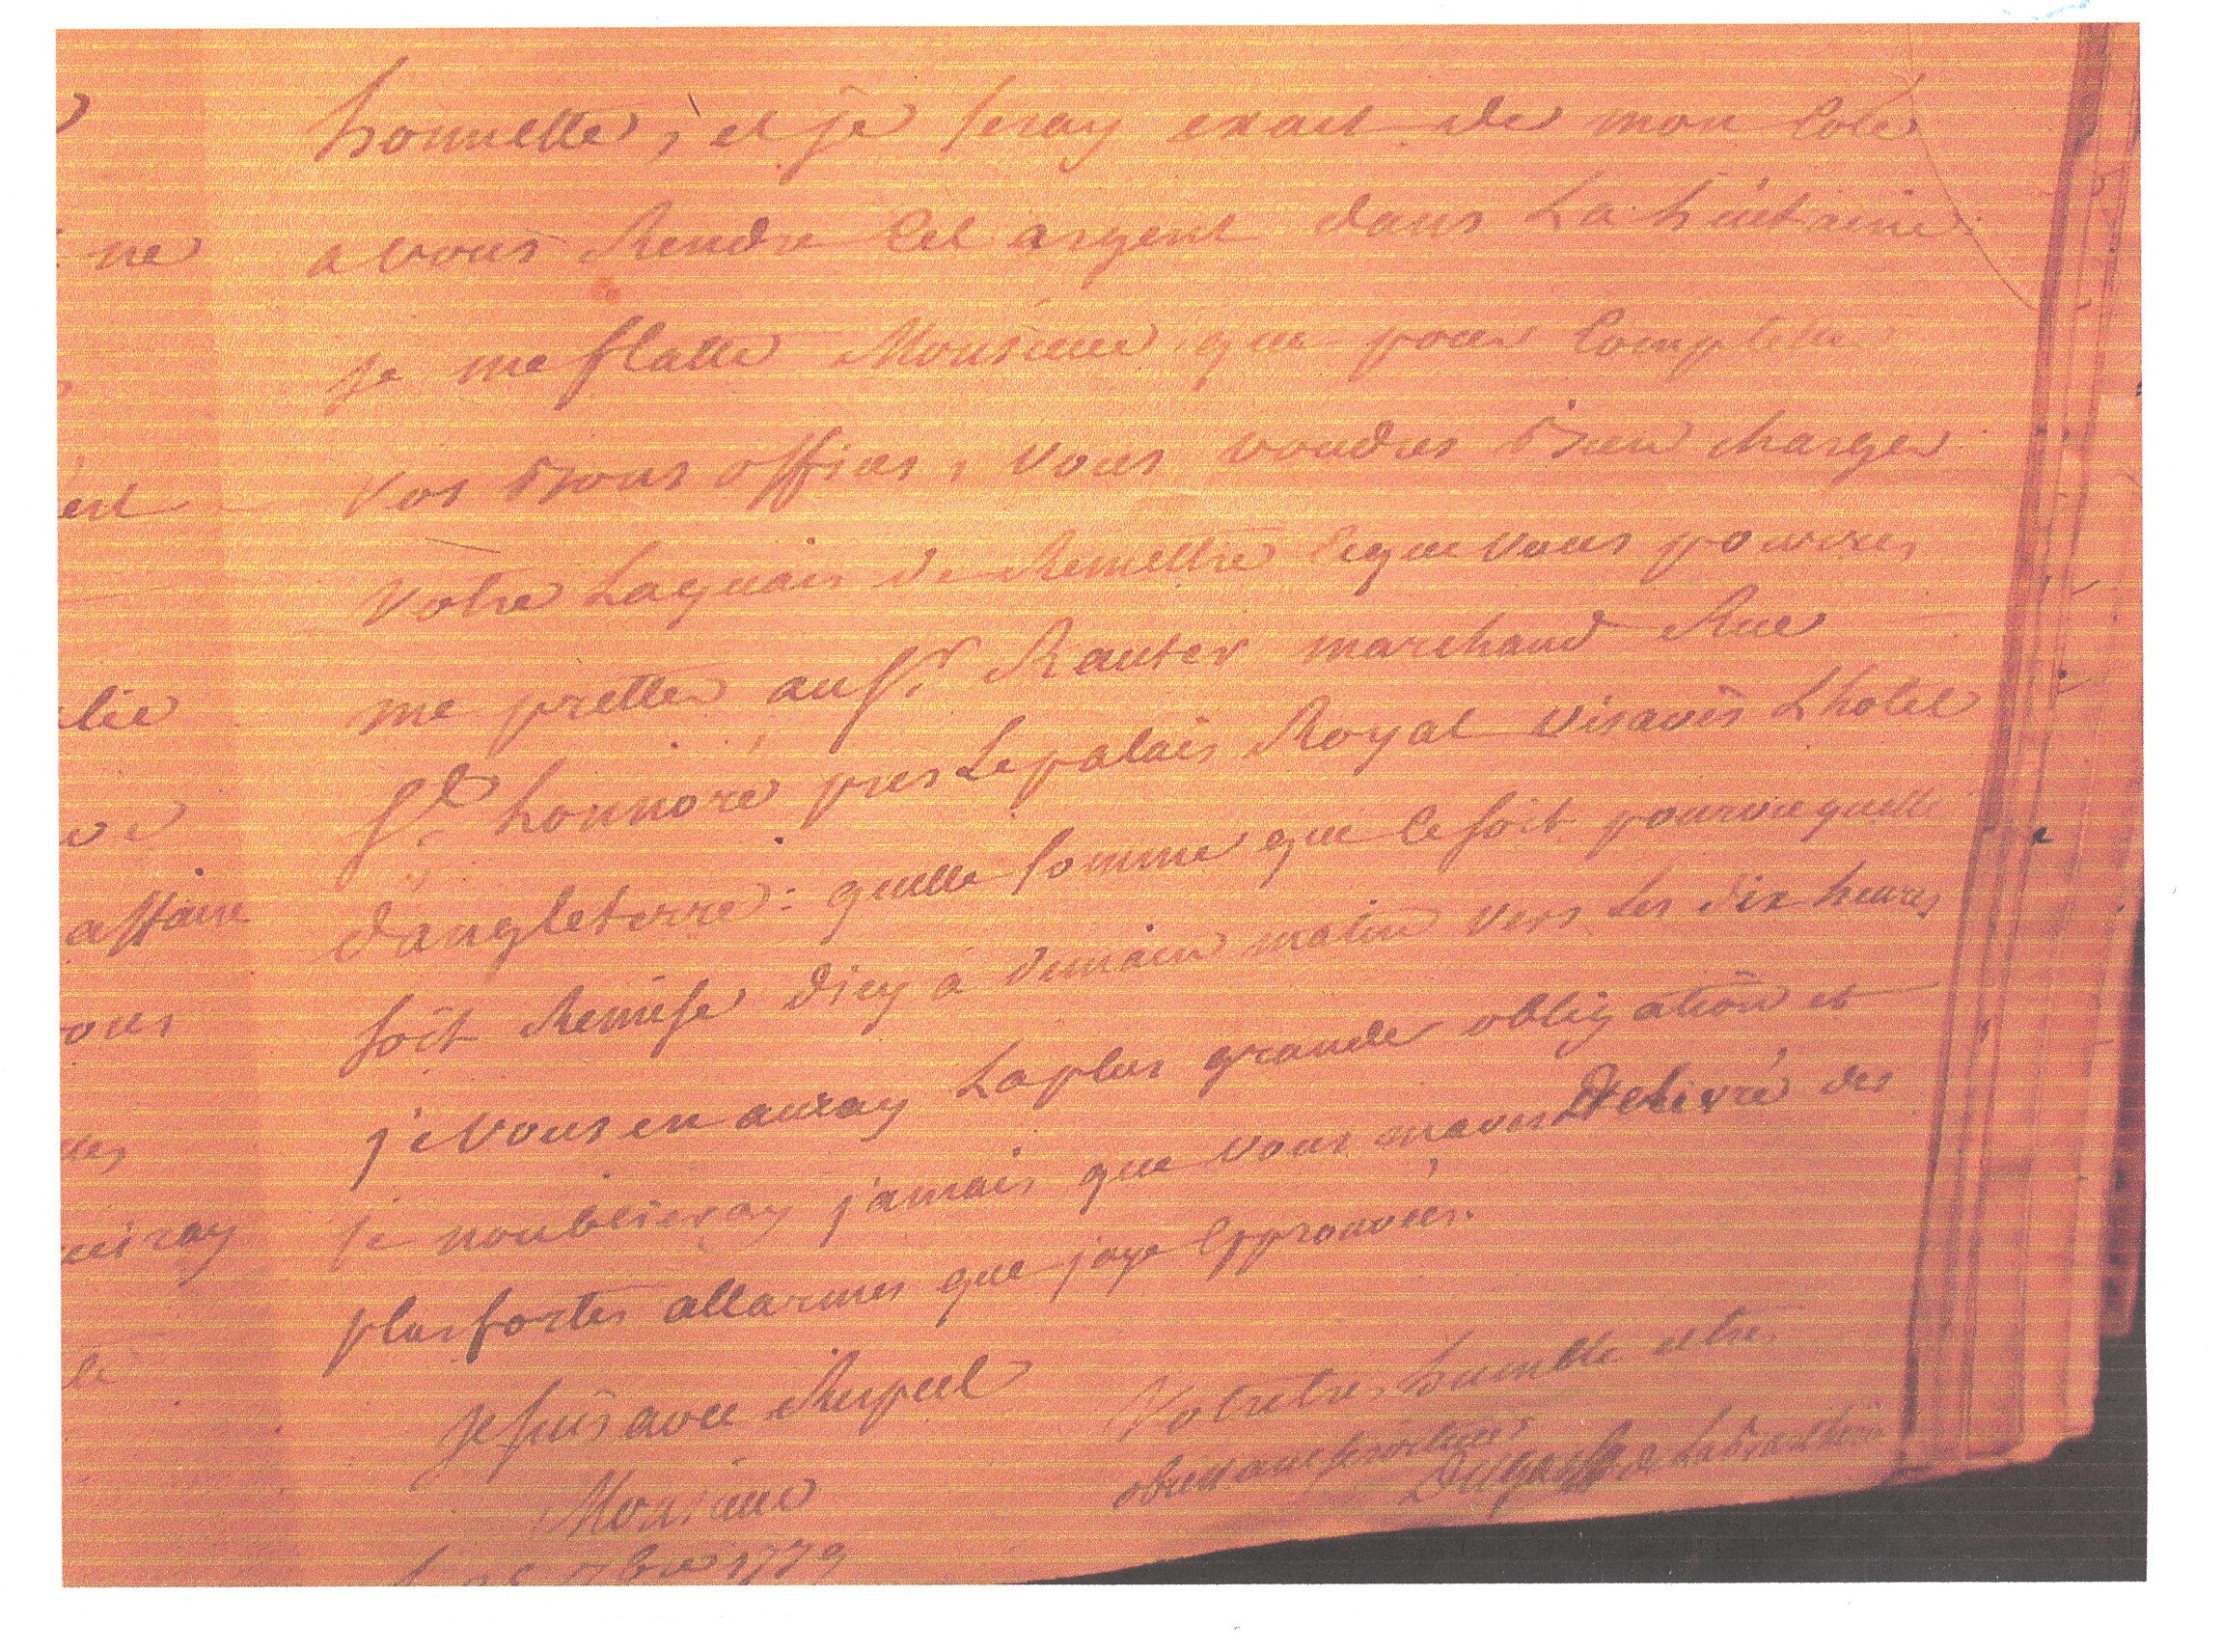 honnette, et je seray exact de mon Coté
a vous Rendre Cet argent dans La huitaine
je me flatte Monsieur que pour Completter
Vos bons offices, vous voudres bien charger
Votre Laquais de Remettre Ceque vous pourres
me pretter au Sr. Rauter marchand Rue
St. honnoré pres Lepalais Royal visavis Lhotel
dangleterre: quelle somme que Cesoit pourvuequelle
soit Remise dicy a demain matin vers Les dix heures
je vous en auray Laplus grande obligation et
je noublieray jamais que vous maves Delivré des
plus fortes allarmes que jaye Epprouvées.
je suis avec Respect
Votre tres humble et tres
obeissant serviteur
Monsieur
7bre 1779
ne
ent
lie
affaire
ous
iray